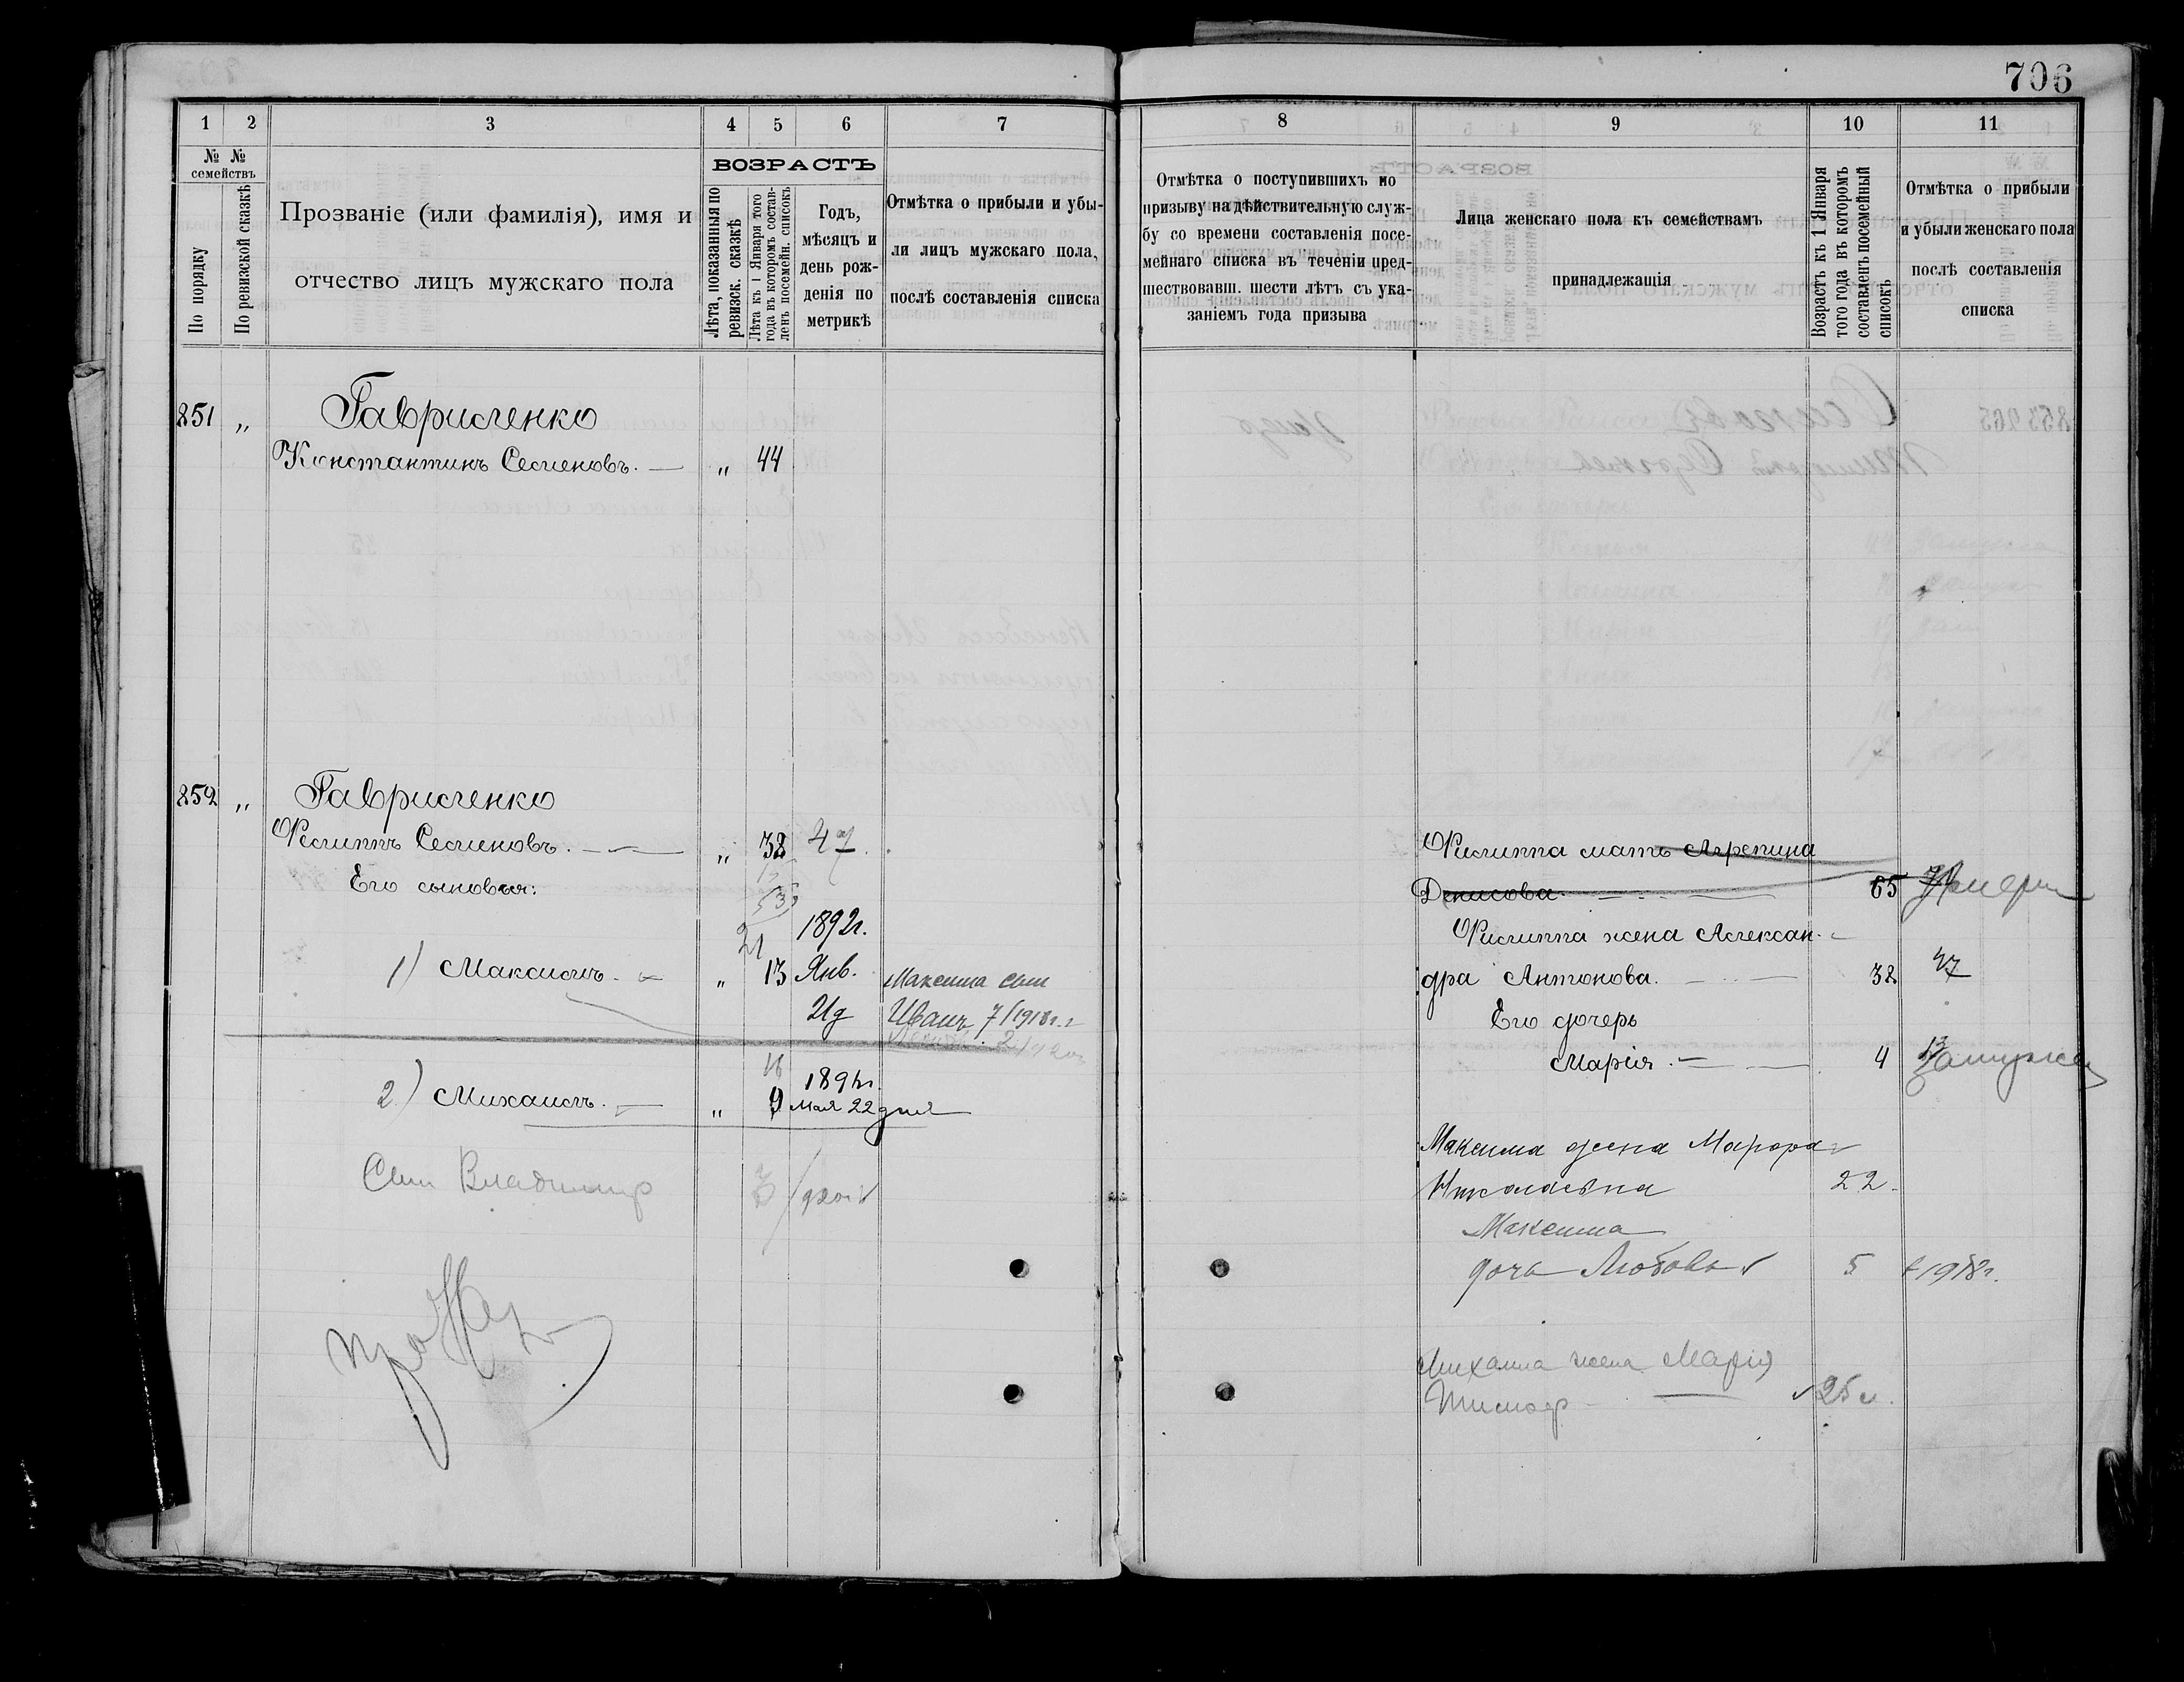 706
1 2 3 4 5 6 7
№ № семействъ
По порядку
По ревизской сказкѣ
Прозваніе (или фамилія), имя и
отчество лицъ мужскаго пола
ВОЗРАСТЪ
Лѣта, показанныя по
ревизск. сказкѣ
Лѣта къ 1 Января того
года въ которомъ состав-
ленъ посемейн. списокъ
Годъ,
мѣсяцъ и
день рож-
денія по
метрикѣ
Отмѣтка о прибыли и убы-
ли лицъ мужскаго пола,
послѣ составленія списка
851 „ Гаврименко
Константинъ Семеновъ. „ 44
852 „ Гаврименко
Филиппъ Семеновъ. „ 38 47
Его сыновья:
53
21 1892г.
1) Максимъ. „ 13 Янв. Максима сын
21д Иванъ 7/1918г.
16 189
2) Михаилъ. „ 9 Мая 22 дня
Сын Владимир
8 9 10 11
Отмѣтка о поступившихъ по
призыву на дѣйствительную служ-
бу со времени составленія посе-
мейнаго списка въ теченіи пред-
шествовавш. шести лѣтъ съ ука-
заніемъ года призыва
Лица женскаго пола къ семействамъ
принадлежащія
Возрастъ къ 1 Января
того года въ которомъ
составленъ посемейный
списокъ
Отмѣтка о прибыли
и убыли женскаго пола
послѣ составленія
списка
Филиппа мать Агрепина
Денисова. 65 умерла
Филиппа жена Алексан-
дра Антонова. 38 47
Его дочерь
Марія. 4 13 Замужем
Максима жена
Николаевна 22
Максима
дочь Любовь 5 1918г.
Михаила жена Марія
Тимоф 25 л.